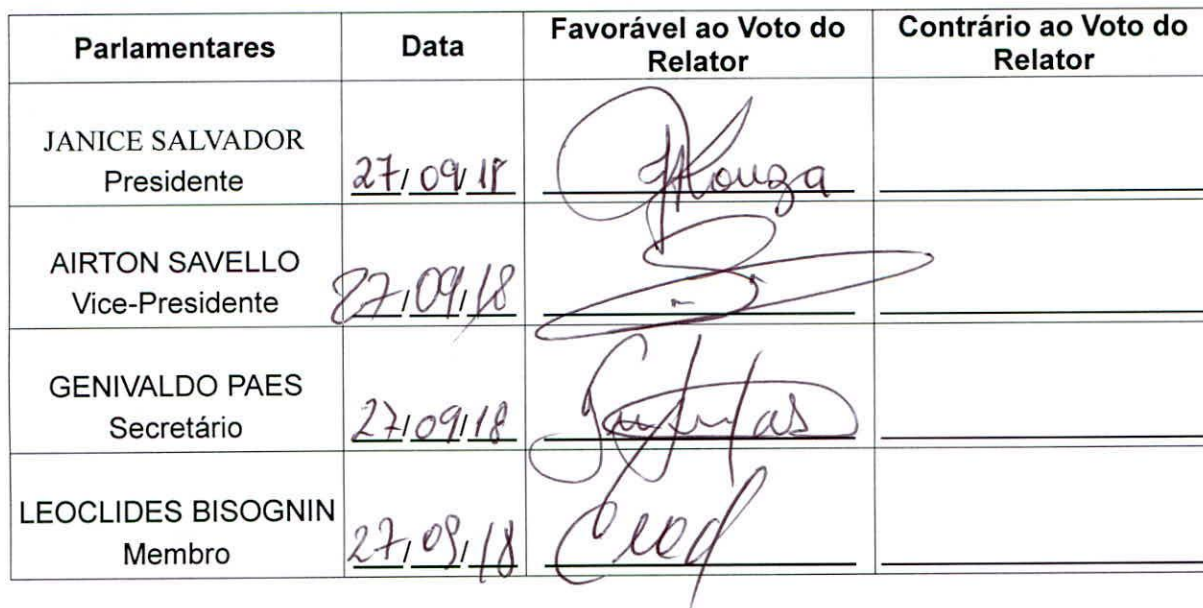 Parlamentares Data Favorável ao Voto do Relator Contrário ao Voto do Relator
JANICE SALVADOR
Presidente 27/09/18
AIRTON SAVELLO
Vice-Presidente 27/09/18
GENIVALDO PAES
Secretário 27/09/18
LEOCLIDES BISOGNIN
Membro 27/09/18